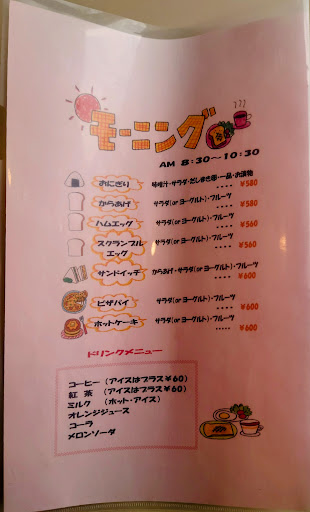 モーニング
AM 8:30〜10:30
おにぎり 味噌汁・サラダ・だし巻き卵・一品・お漬物
・・・・ ¥580
からあげ サラダ(orヨーグルト)・フルーツ
・・・・ ¥580
ハムエッグ サラダ(orヨーグルト)・フルーツ
・・・・ ¥560
スクランブル
エッグ サラダ(orヨーグルト)・フルーツ
・・・・ ¥560
サンドイッチ からあげ・サラダ(orヨーグルト)・フルーツ
・・・・ ¥600
ピザパイ サラダ(orヨーグルト)・フルーツ
・・・・ ¥600
ホットケーキ サラダ(orヨーグルト)・フルーツ
・・・・・ ¥600
ドリンクメニュー
コーヒー (アイスはプラス¥60)
紅 茶 (アイスはプラス¥60)
ミルク (ホット・アイス)
オレンジジュース
コーラ
メロンソーダ